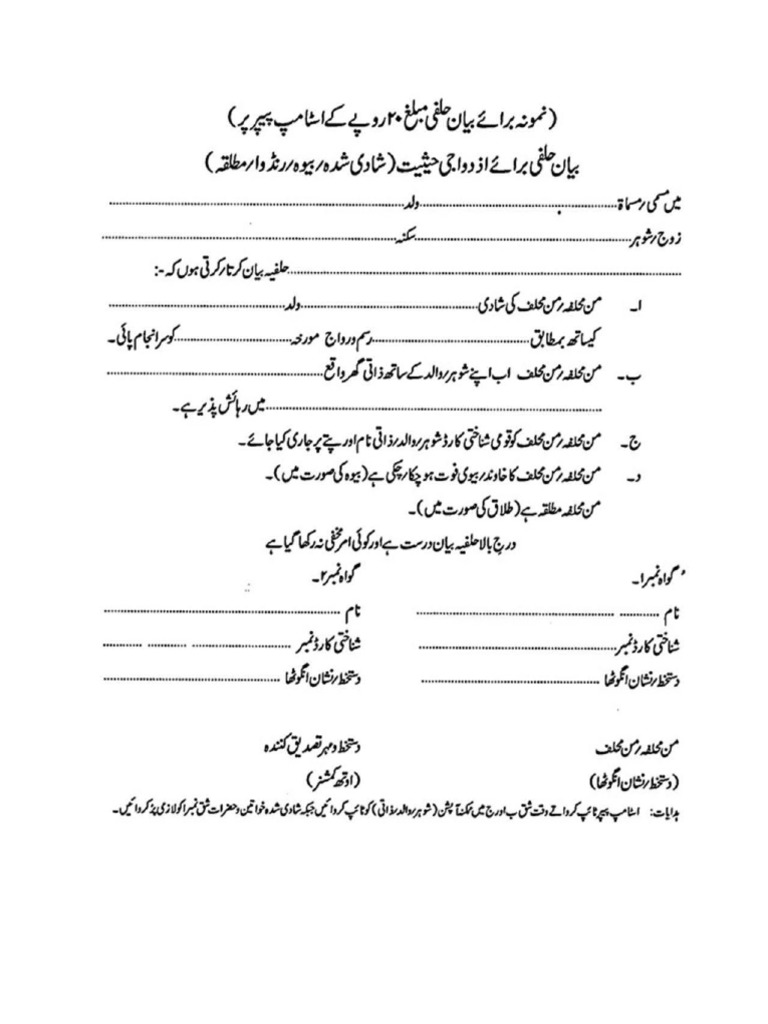 (نمونہ برائے بیان حلفی مبلغ ۲۰ روپے کے اسٹامپ پیپر پر)
بیان حلفی برائے ازدواجی حیثیت (شادی شدہ/بیوہ/رنڈوا/مطلقہ)
میں مسمی/مسماۃ.............................................ولد.............................................
زوج/شوہر.............................................سکنہ.............................................
.............................................حلفیہ بیان کرتا/کرتی ہوں کہ :-
ا۔ من محلفہ/من محلف کی شادی.............................................ولد.............................................
کیساتھ بمطابق.............................................رسم و رواج مورخہ..............................کو سرانجام پائی۔
ب۔ من محلفہ/من محلف اب اپنے شوہر/والد کے ساتھ ذاتی گھر واقع.............................................
.............................................میں رہائش پذیر ہے۔
ج۔ من محلفہ/من محلف کو قومی شناختی کارڈ شوہر/والد/ذاتی نام اور پتے پر جاری کیا جائے۔
د۔ من محلفہ/من محلف کا خاوند/بیوی فوت ہو چکا/چکی ہے (بیوہ کی صورت میں)۔
من محلفہ مطلقہ ہے (طلاق کی صورت میں)۔
درج بالا حلفیہ بیان درست ہے اور کوئی امر مخفی نہ رکھا گیا ہے
گواہ نمبر ۱۔ گواہ نمبر ۲۔
نام ............................................. نام .............................................
شناختی کارڈ نمبر............................................. شناختی کارڈ نمبر .............................................
دستخط/نشان انگوٹھا ............................................. دستخط/نشان انگوٹھا .............................................
من محلفہ/من محلف دستخط و مہر تصدیق کنندہ
(دستخط/نشان انگوٹھا) (اوتھ کمشنر)
ہدایات: اسٹامپ پیپر ٹائپ کرواتے وقت شق ب اور ج میں ممکنہ آپشن (شوہر/والد/ذاتی) کو ٹائپ کروائیں جبکہ شادی شدہ خواتین و حضرات شق نمبر ا کو لازمی پڑ کروائیں۔